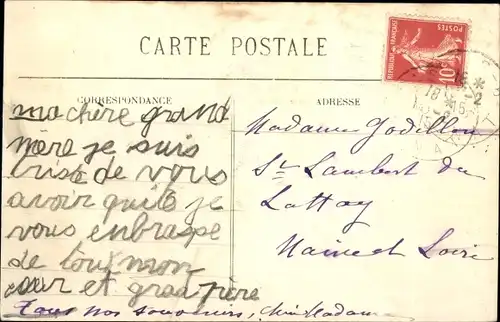 CARTE POSTALE
REPUBLIQUE FRANÇAISE
POSTES
10
CORRESPONDANCE
ma chère grand
mère je suis
triste de vous
avoir quité je
vous enbrasse
de tout mon
cœur et grand père
Tous nos souvenirs, chère Madame
ADRESSE
Madame Godillon
St Lambert du
Lattay
Maine et Loire